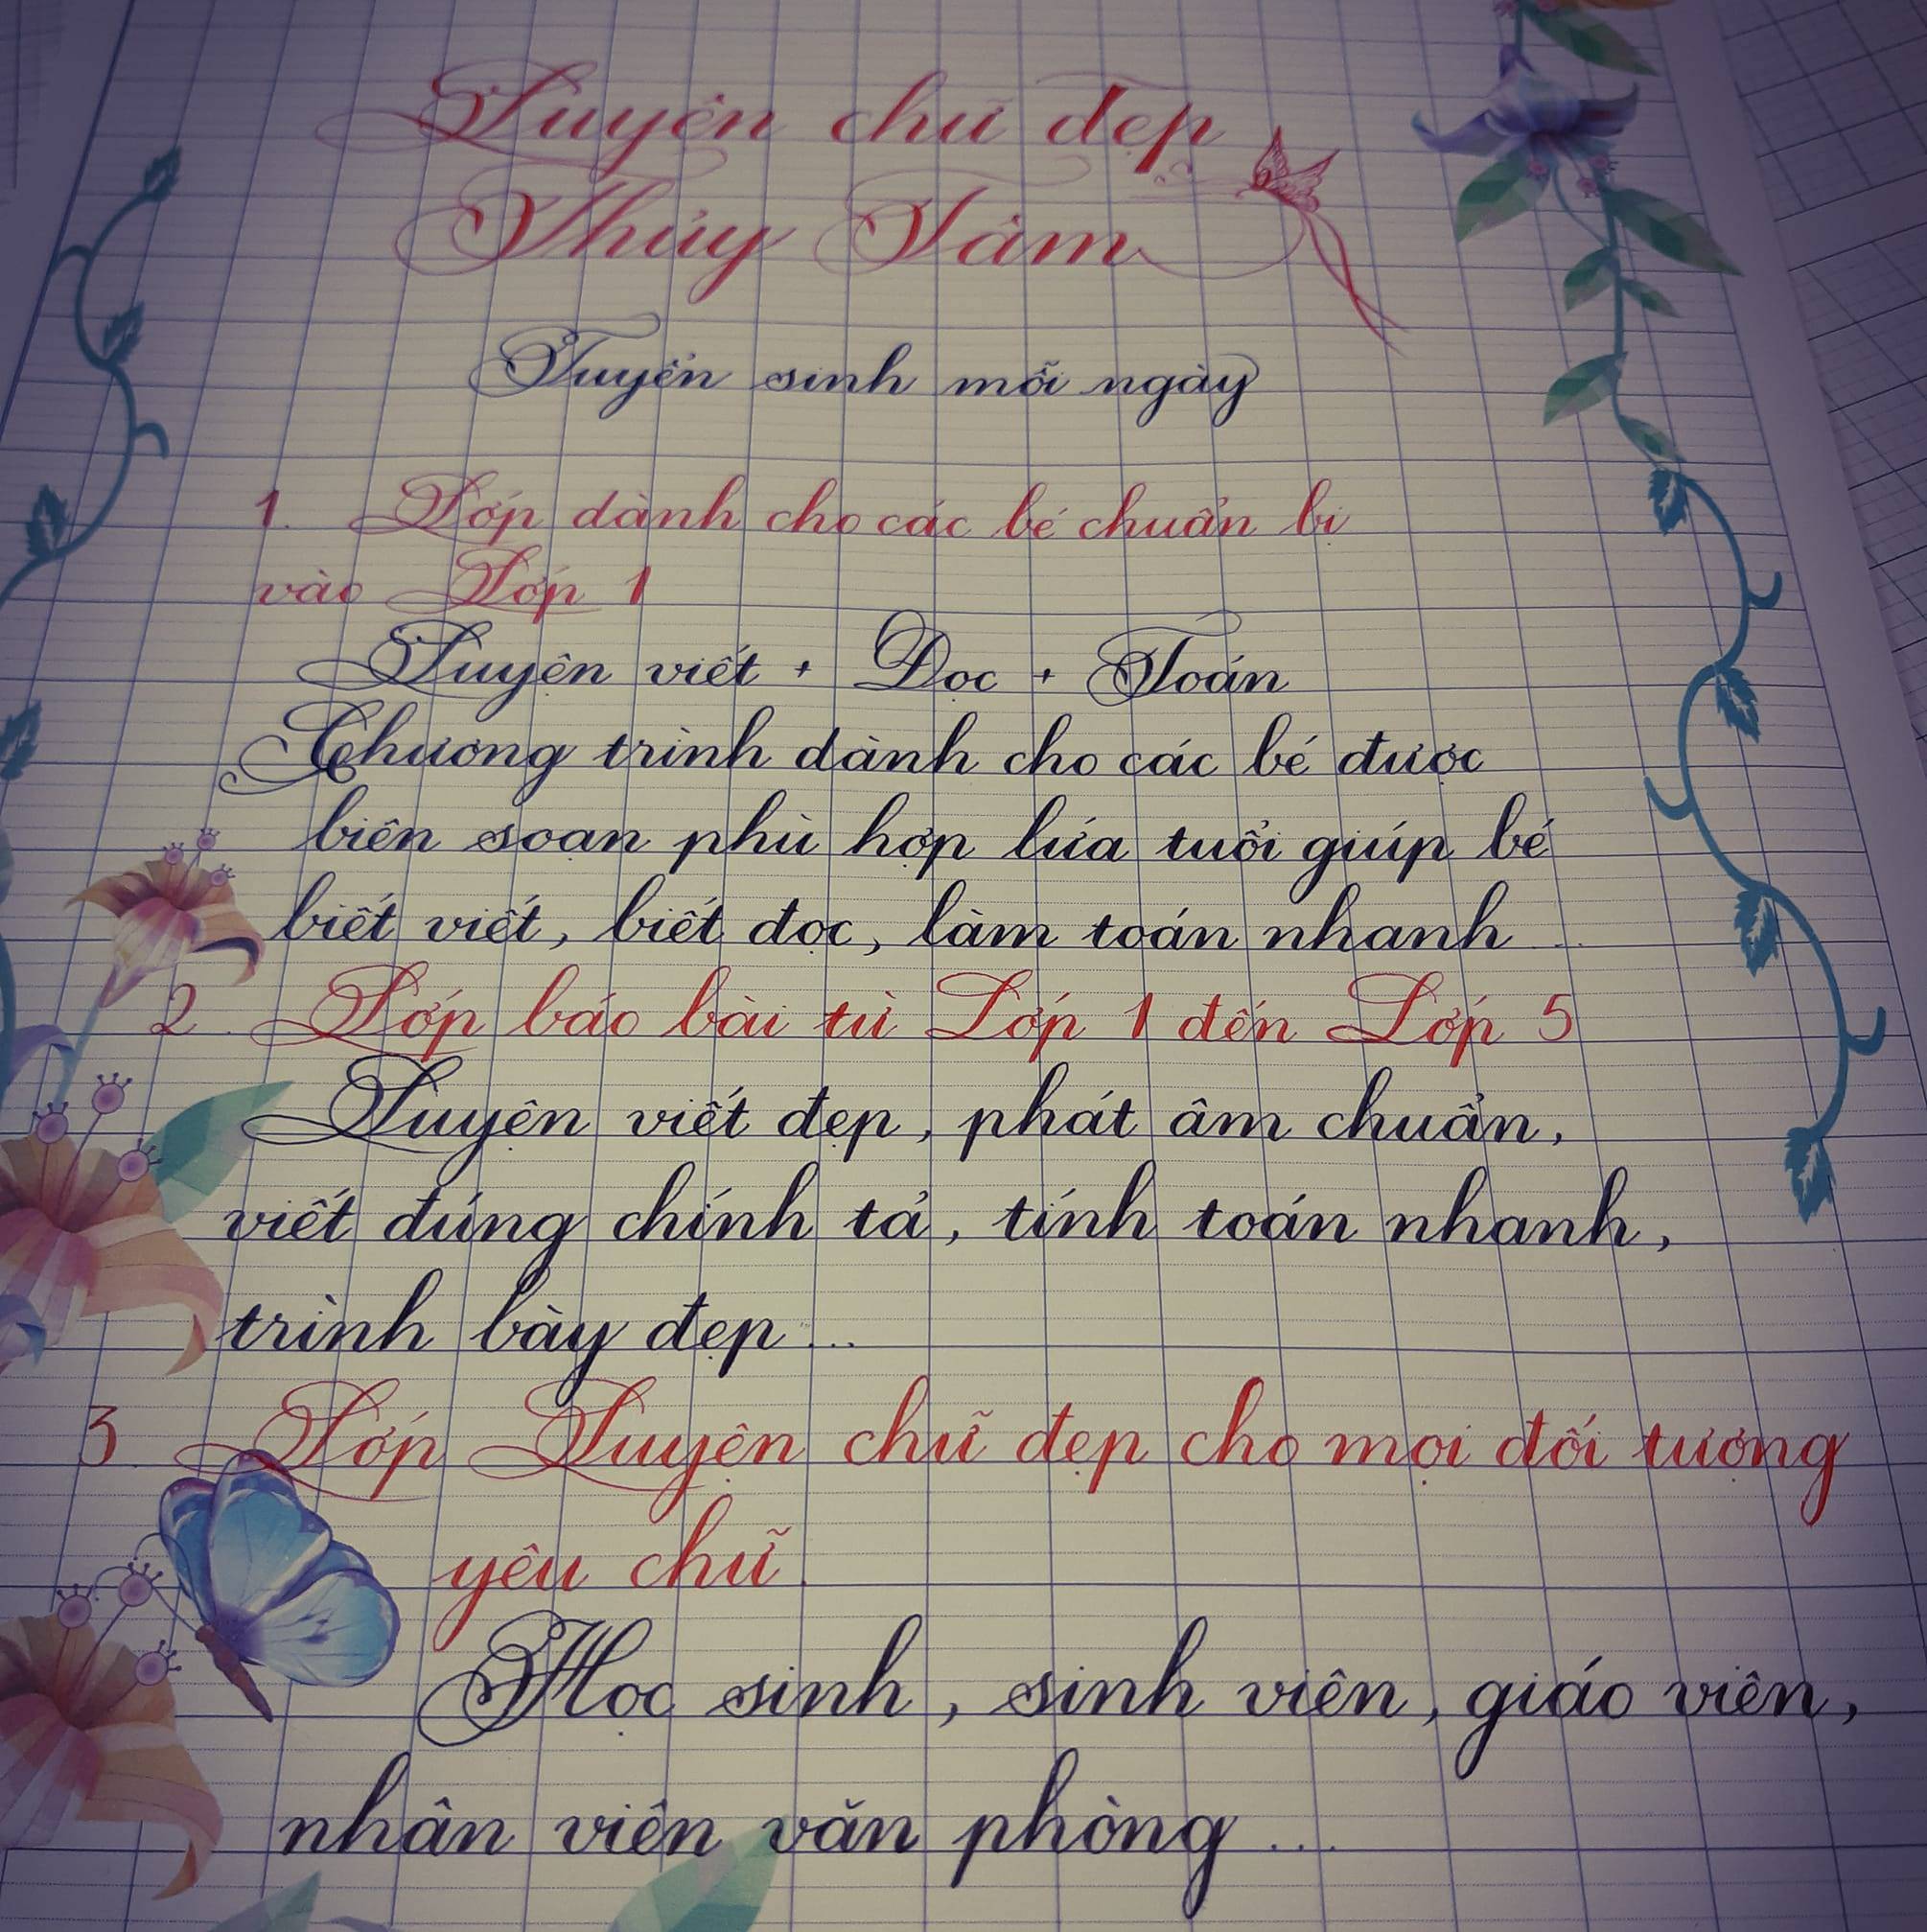 Luyện chữ đẹp
Thủy Tâm
Tuyển sinh mỗi ngày
1. Lớp dành cho các bé chuẩn bị
vào Lớp 1
Luyện viết + Đọc + Toán
Chương trình dành cho các bé được
biên soạn phù hợp lứa tuổi giúp bé
biết viết, biết đọc, làm toán nhanh...
2. Lớp báo bài từ Lớp 1 đến Lớp 5
Luyện viết đẹp, phát âm chuẩn,
viết đúng chính tả, tính toán nhanh,
trình bày đẹp...
3. Lớp Luyện chữ đẹp cho mọi đối tượng
yêu chữ.
Học sinh, sinh viên, giáo viên,
nhân viên văn phòng...